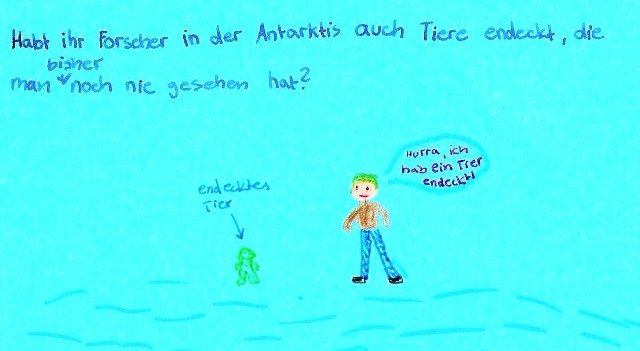 Habt ihr Forscher in der Antarktis auch Tiere endeckt, die
bisher
man noch nie gesehen hat?
Hurra, ich
hab ein Tier
endeckt!
endecktes
Tier